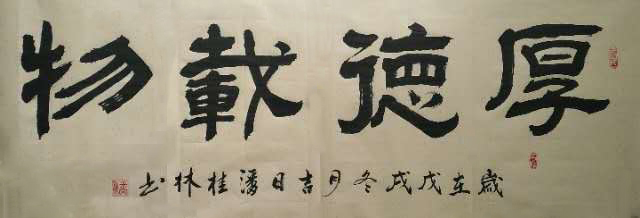 厚德載物
歲在戊戌冬月吉日潘桂林书